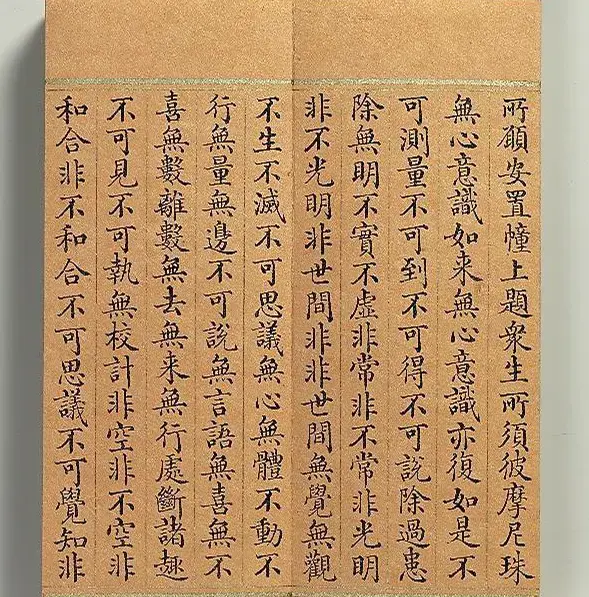 所願安置幢上題衆生所須彼摩尼珠
無心意識如来無心意識亦復如是不
可測量不可到不可得不可說除過患
除無明不實不虛非常非不常非光明
非不光明非世間非非世間無覺無觀
不生不滅不可思議無心無體不動不
行無量無邊不可說無言語無喜無不
喜無數離數無去無来無行處斷諸趣
不可見不可執無校計非空非不空非
和合非不和合不可思議不可覺知非